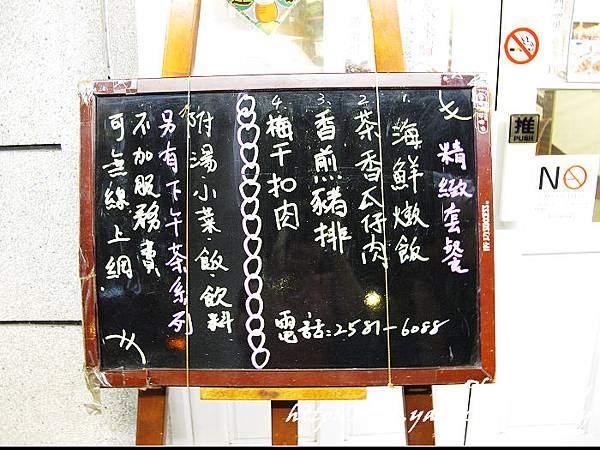 精緻套餐
1. 海鮮燉飯
2. 茶香瓜仔肉
3. 香煎豬排
4. 梅干扣肉
電話:2581-6088
附湯.小菜.飯.飲料
另有下午茶系列
不加服務費
可無線上網
推
PUSH
NO